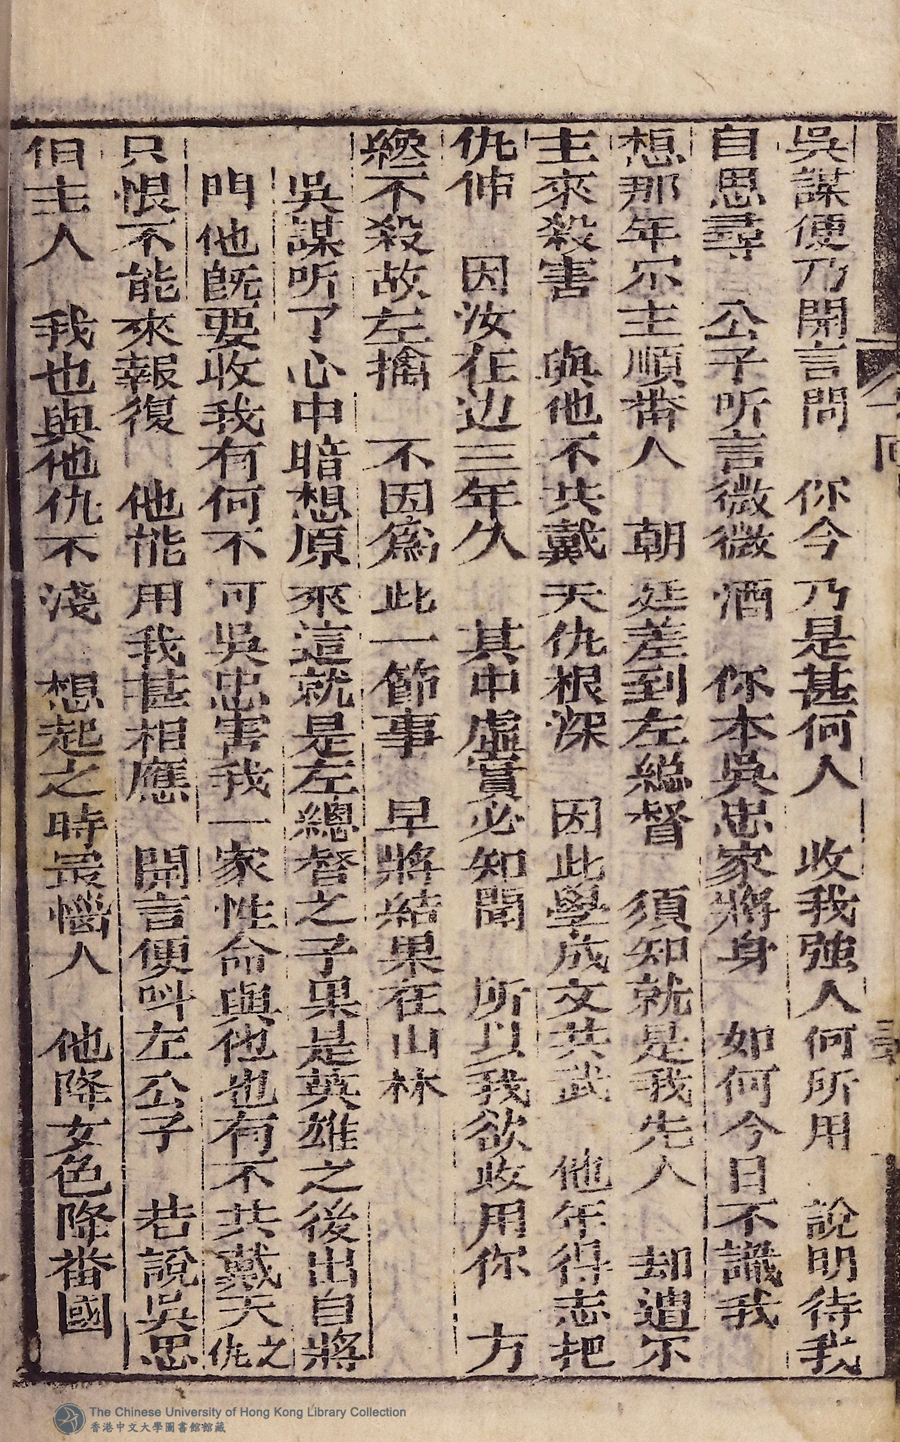 吳謀便乃開言問　你今乃是甚何人　收我強人何所用　說明待我
自思尋　公子听言微微洒　你本吳忠家將身　如何今日不識我
想那年尔主順畨人　朝廷差到左緫督　須知就是我先人　却遭尔
主來殺害　與他不共戴天仇根深　因此學成文共武　他年得志把
仇伸　因汝在边三年久　其中虛實必知聞　所以我欲收用你　方
纔不殺故左擒　不因爲此一節事　早將結果在山林
吳謀听了心中暗想原來這就是左總督之子果是英雄之後出自將
門他旣要收我有何不可吳忠害我一家性命與他也有不共戴天之仇
只恨不能來報復　他能用我甚相應　開言便呌左公子　若說吳忠
但主人　我也與他仇不淺　想起之時最惱人　他降女色降畨國
The Chinese University of Hong Kong Library Collection
香港中文大學圖書館館藏